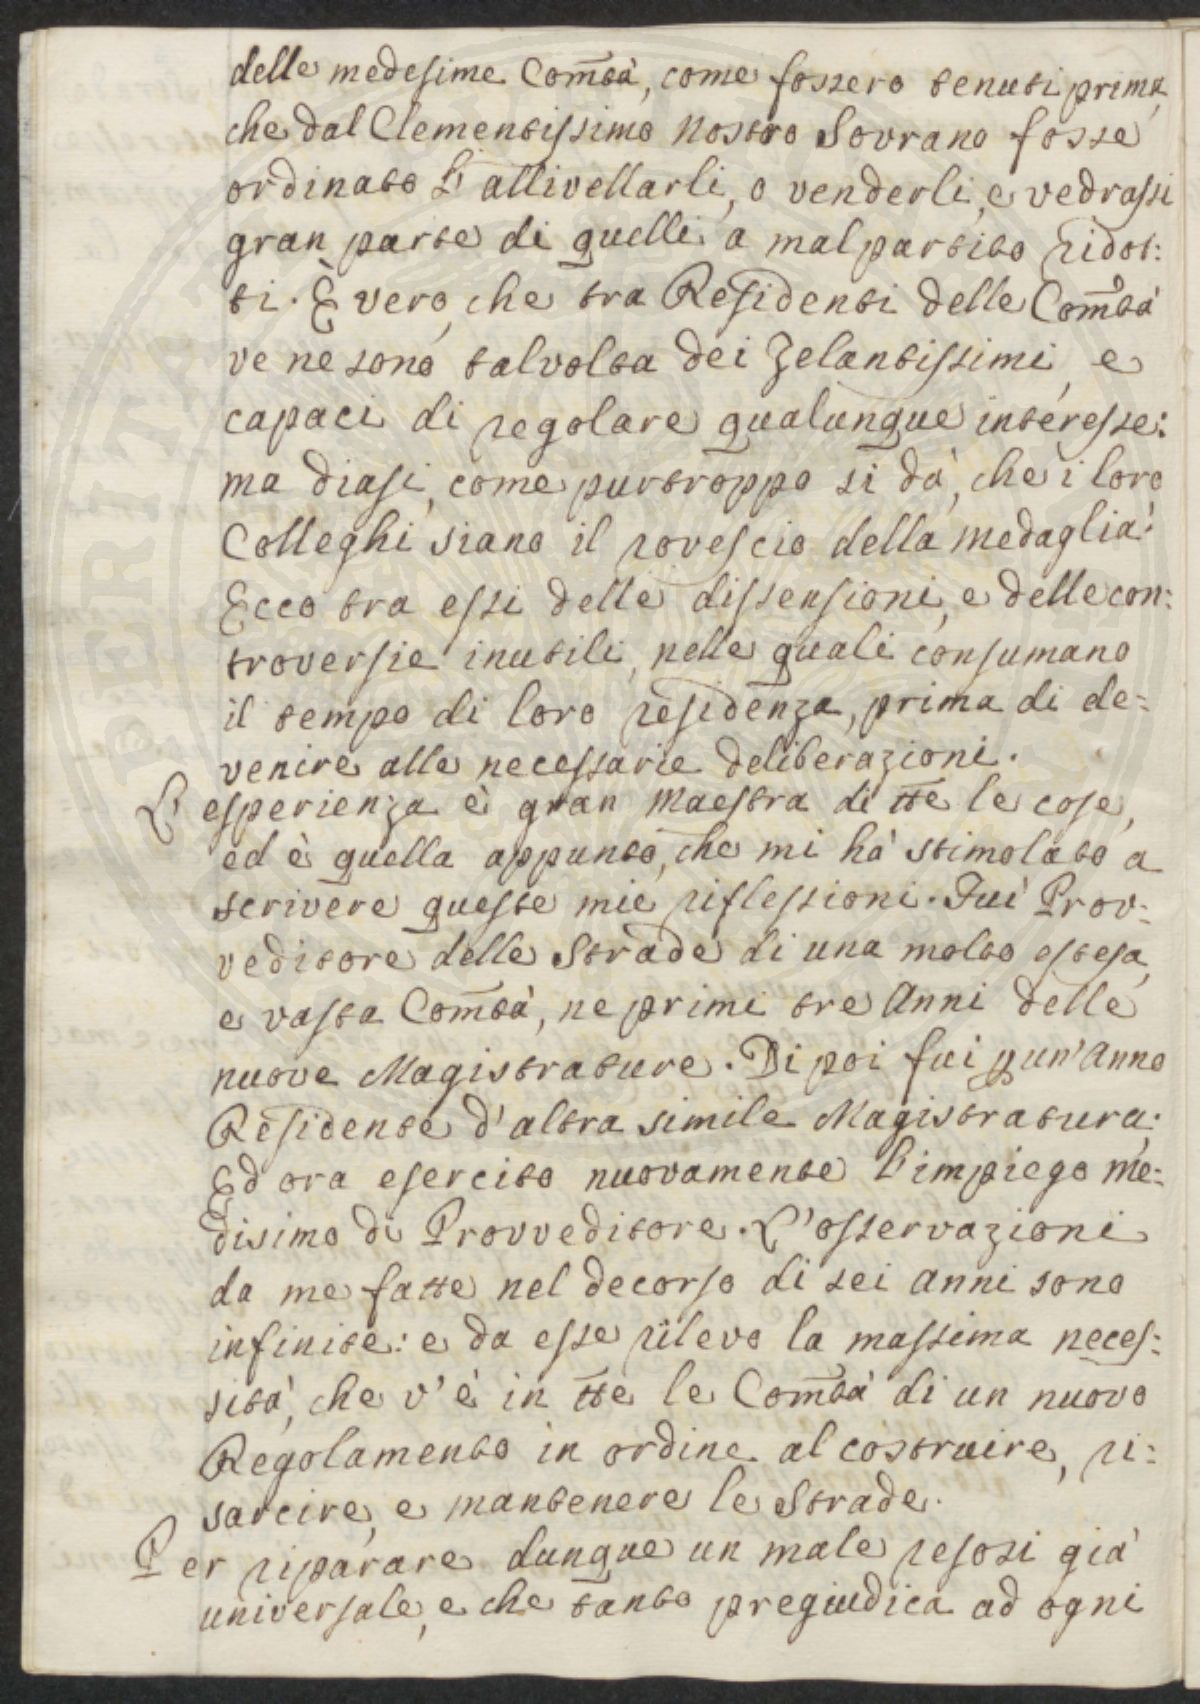 delle medesime Com̃tà, come fossero tenuti prima,
che dal Clementissimo Nostro Sovrano fosse
ordinato l'allivellarli, o venderli, e vedrassi
gran parte di quelli a mal partito ridot:
ti. È vero, che tra Residenti delle Com̃tà
ve ne sono talvolta dei Zelantissimi, e
capaci di regolare qualunque interesse:
ma diasi, come purtroppo si dà, che i loro
Colleghi siano il rovescio della medaglia:
Ecco tra essi delle dissensioni, e delle con:
troversie inutili, nelle quali consumano
il tempo di loro residenza, prima di de:
venire alle necessarie deliberazioni.
L'esperienza è gran Maestra di tt̃e le cose,
ed è quella appunto, che mi hà stimolato a
scrivere queste mie riflessioni. Fui Prov:
veditore delle Strade di una molto estesa,
e vasta Com̃tà, ne primi tre Anni delle
nuove Magistrature. Di poi fui p un'Anno
Residente d'altra simile Magistratura:
Ed ora esercito nuovamente l'impiego me:
disimo di Provveditore. L'osservazioni
da me fatte nel decorso di sei Anni sono
infinite: e da esse rilevo la massima neces:
sità, che v'è in tt̃e le Com̃tà di un nuovo
Regolamento in ordine al costruire, ri:
sarcire, e mantenere le Strade.
Per riparare dunque un male resosi già
universale, e che tanto pregiudica ad ogni
PERITATE